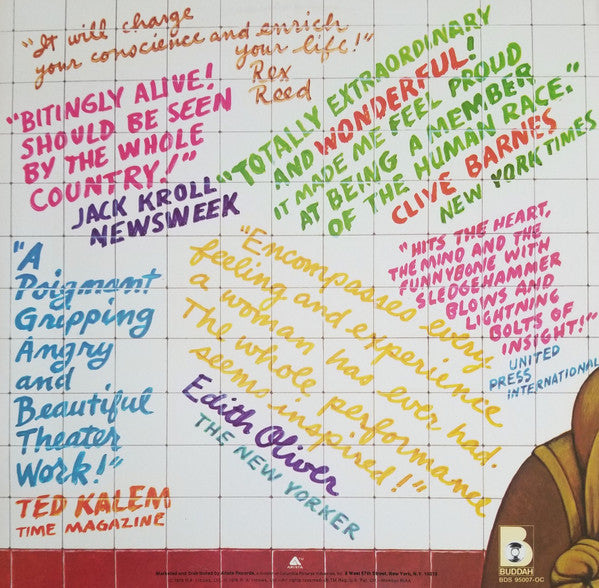 "It will charge
your conscience and enrich
your life!"
Rex
Reed
"BITINGLY ALIVE!
SHOULD BE SEEN
BY THE WHOLE
COUNTRY!"
JACK KROLL
NEWSWEEK
"TOTALLY EXTRAORDINARY
AND WONDERFUL!
IT MADE ME FEEL PROUD
AT BEING A MEMBER
OF THE HUMAN RACE."
CLIVE BARNES
NEW YORK TIMES
"A
Poignant
Gripping
Angry
and
Beautiful
Theater
Work!"
TED KALEM
TIME MAGAZINE
"Encompasses every
feeling and experience
a woman has ever had.
The whole performance
seems inspired!"
Edith Oliver
THE NEW YORKER
"HITS THE HEART,
THE MIND AND THE
FUNNYBONE WITH
SLEDGEHAMMER
BLOWS AND
LIGHTNING
BOLTS OF
INSIGHT!"
UNITED
PRESS
INTERNATIONAL
B
BUDDAH
BDS 95007-OC
ARISTA
Marketed and Distributed by Arista Records, A Division of Columbia Pictures Industries, Inc. 6 West 57th Street, New York, N.Y. 10019